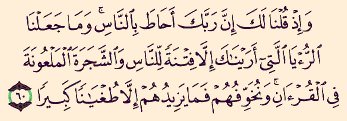 وَإِذْ قُلْنَا لَكَ إِنَّ رَبَّكَ أَحَاطَ بِالنَّاسِ ۚ وَمَا جَعَلْنَا
الرُّءْيَا الَّتِي أَرَيْنَٰكَ إِلَّا فِتْنَةً لِّلنَّاسِ وَالشَّجَرَةَ الْمَلْعُونَةَ
فِي الْقُرْءَانِ ۚ وَنُخَوِّفُهُمْ فَمَا يَزِيدُهُمْ إِلَّا طُغْيَٰنًا كَبِيرًا ٦٠